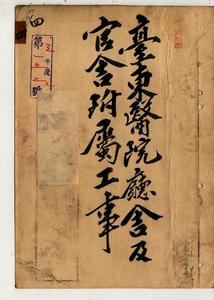 臺東醫院廳舍及
官舍附屬工事
四
第
年度
號